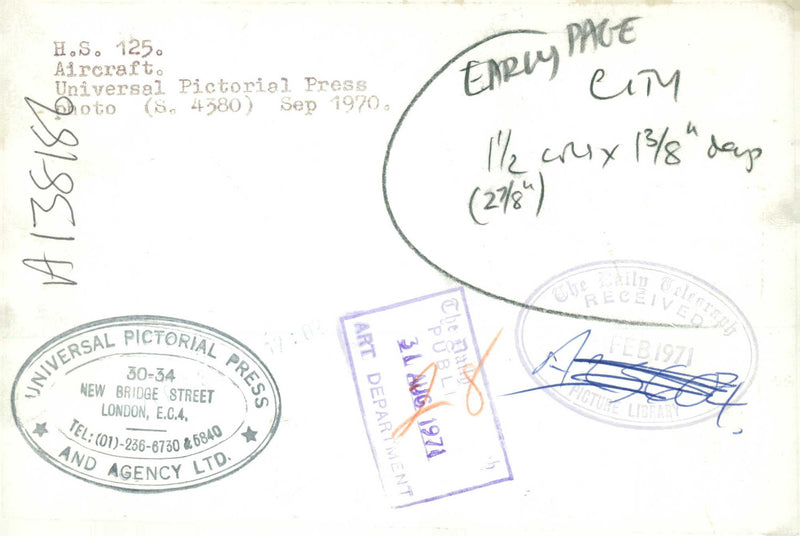 H.S. 125.
Aircraft.
Universal Pictorial Press
photo (S. 4380) Sep 1970.
A138183
EARLY PAGE
CITY
1 1/2 cols x 1 3/8" deep
(2 7/8")
UNIVERSAL PICTORIAL PRESS
30-34
NEW BRIDGE STREET
LONDON, E.C.4,
TEL: (01)-236-6730 & 5840
AND AGENCY LTD.
The Daily
PUBLI
AUG 1971
ART DEPARTMENT
The Daily Telegraph
RECEIVED
FEB 1971
PICTURE LIBRARY